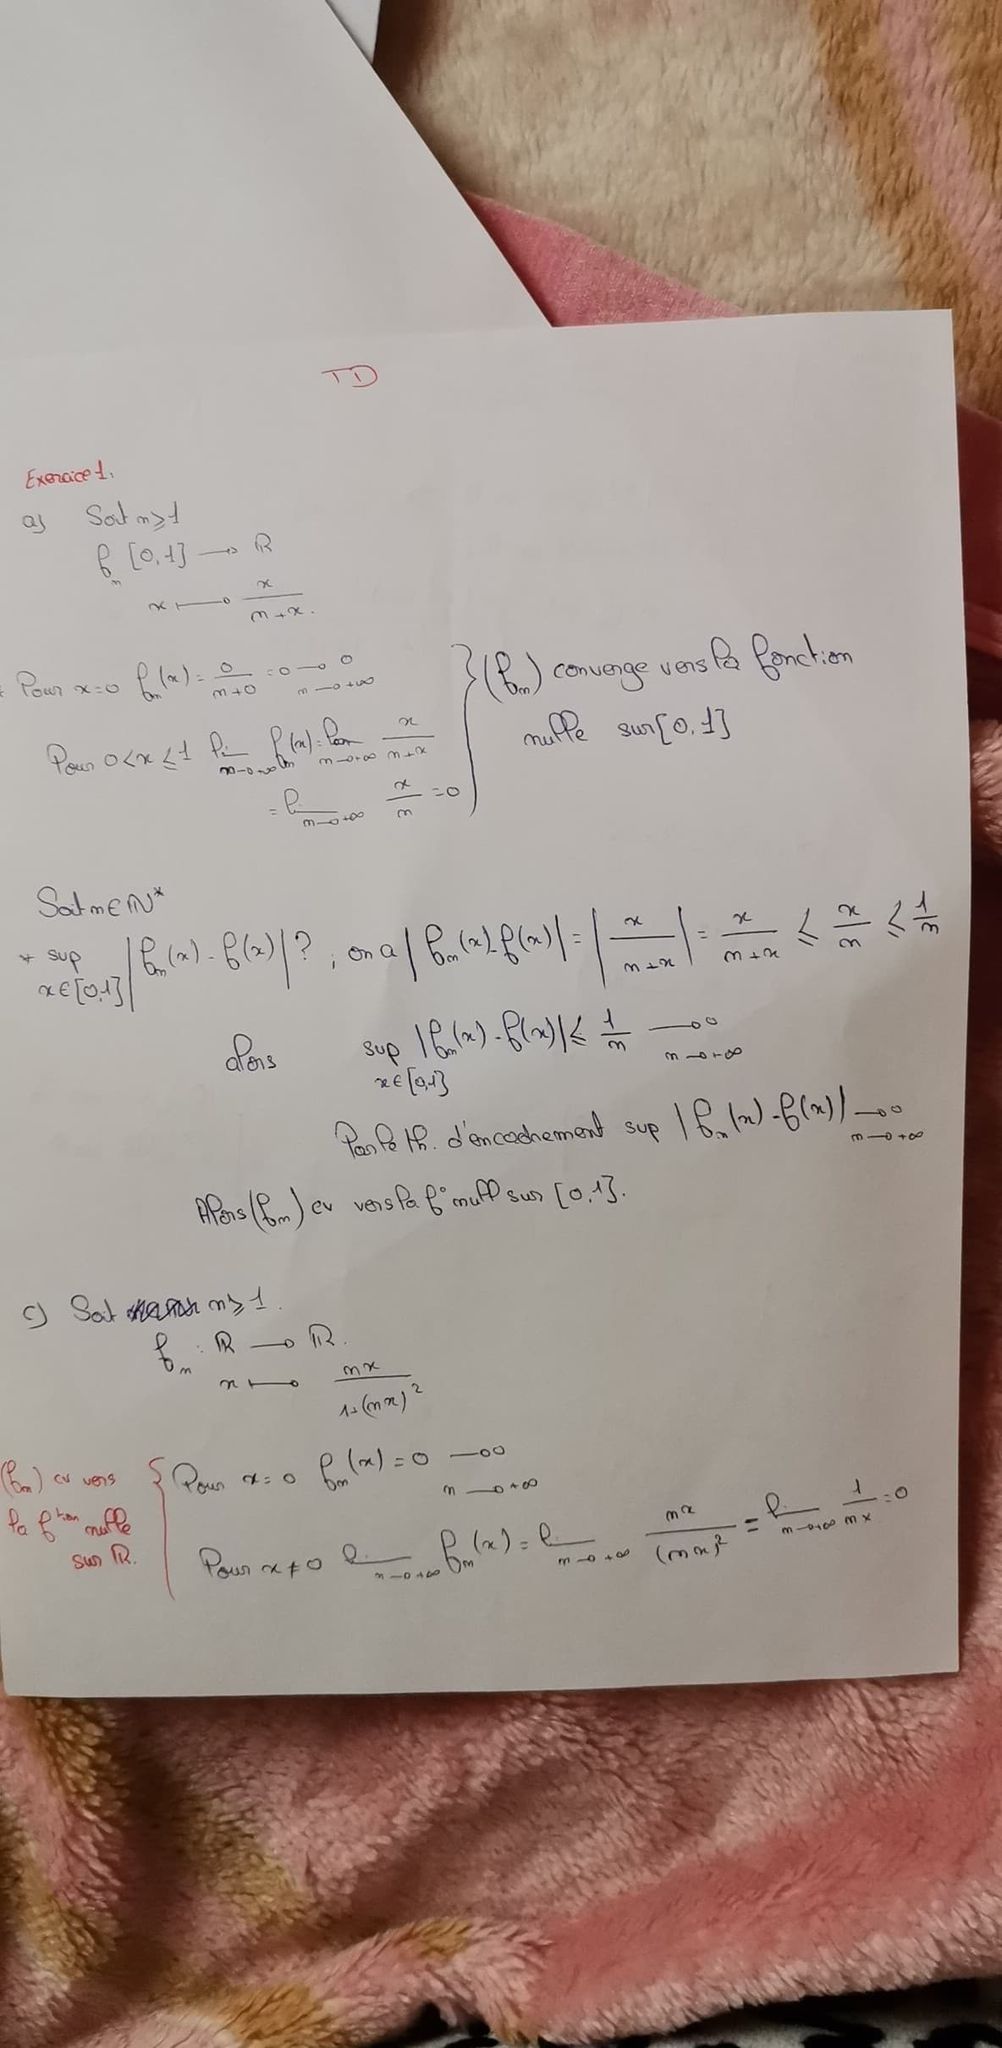 TD
Exercice 1.
a) Soit n ≥ 1
fₙ [0,1] → ℝ
x ↦ x/(n+x).
* Pour x=0 fₙ(x) = 0/(n+0) = 0 → 0 n→+∞
Pour 0<x≤1 lim n→+∞ fₙ(x) = lim n→+∞ x/(n+x)
= lim n→+∞ x/n = 0
} (fₙ) converge vers la fonction
nulle sur [0,1]
Soit n∈ℕ*
* sup x∈[0,1] |fₙ(x) - f(x)| ? , on a |fₙ(x) - f(x)| = |x/(n+x)| = x/(n+x) ≤ x/n ≤ 1/n
alors sup x∈[0,1] |fₙ(x) - f(x)| ≤ 1/n → 0 n→+∞
Par le th. d'encadrement sup |fₙ(x) - f(x)| → 0 n→+∞
Alors (fₙ) cv vers la f° null sur [0,1].
c) Soit n ≥ 1.
fₙ : ℝ → ℝ.
x ↦ nx/(1+(nx)²)
(fₙ) cv vers
la f^tion nulle
sur ℝ.
{ Pour x=0 fₙ(x) = 0 → 0 n→+∞
Pour x≠0 lim n→+∞ fₙ(x) = lim n→+∞ nx/(nx)² = lim n→+∞ 1/nx = 0